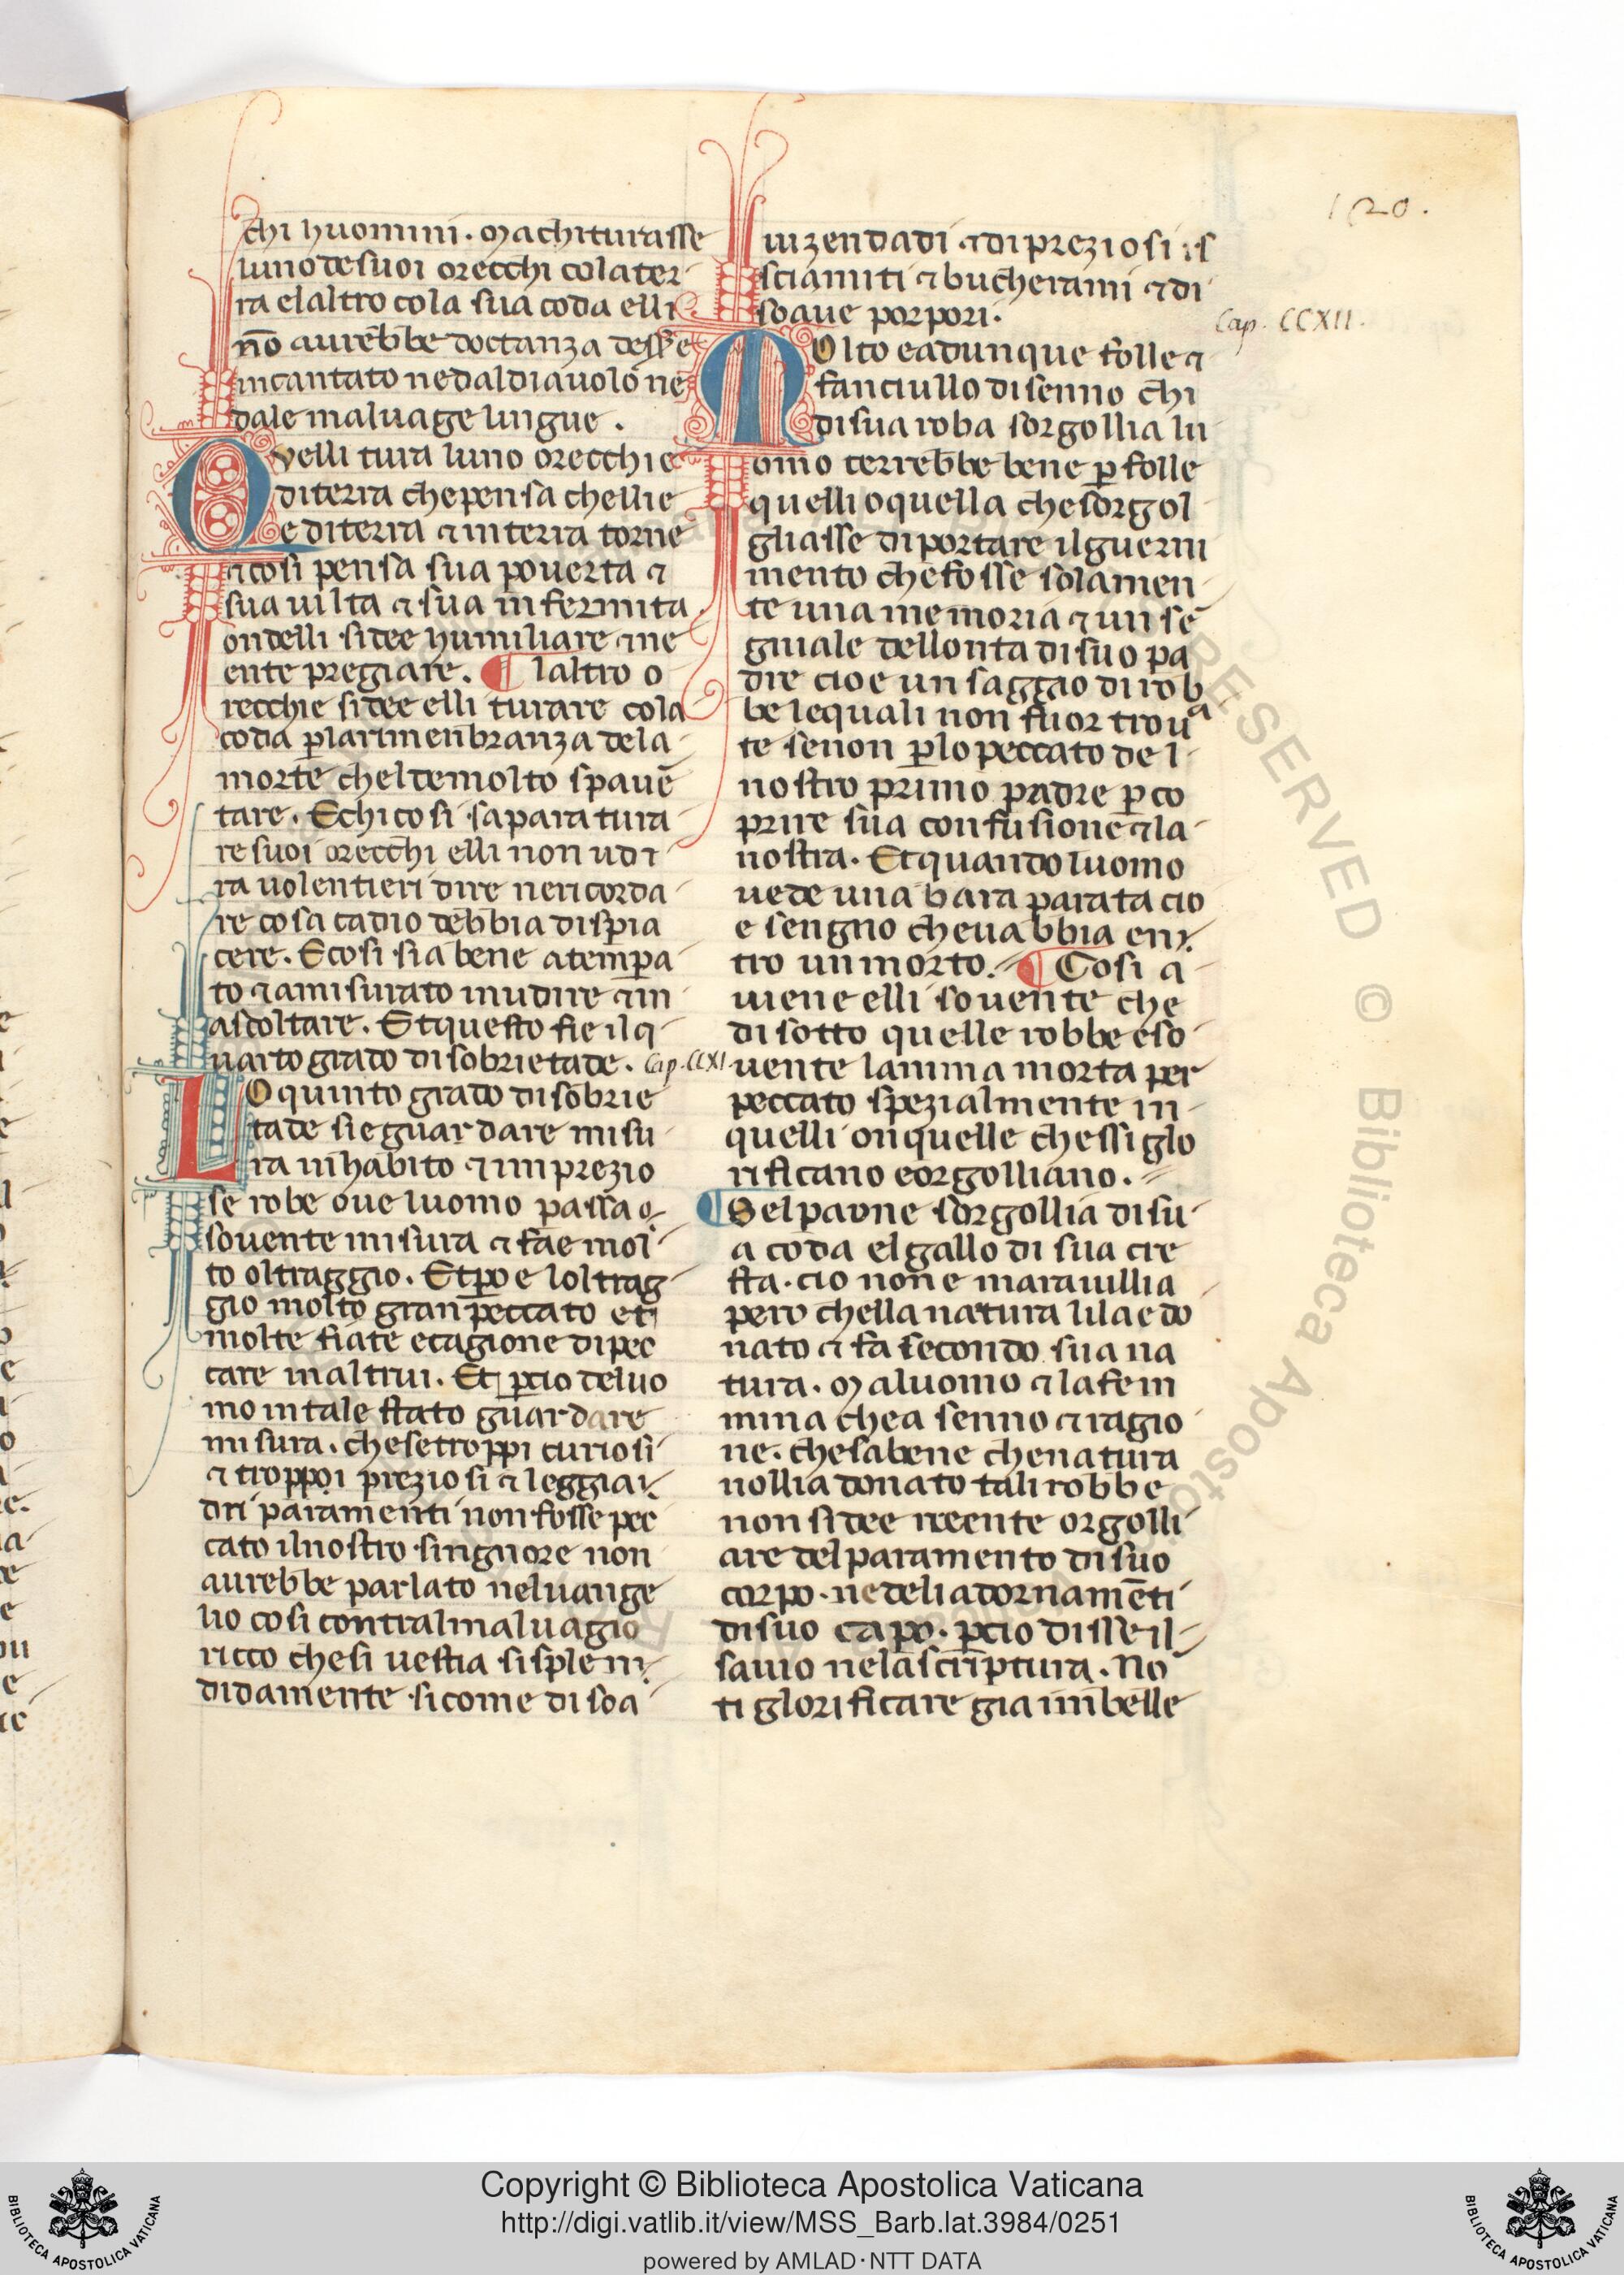 120.
chi huomini. Ma chi turasse
luno de suoi orecchi cola ter
ra el altro cola sua coda elli
nō aurebbe doctanza dess̄e
incantato ne dal diauolo ne
dale maluage lingue.
Quelli tura luno orecchie
di terra che pensa chellie
e di terra ⁊ in terra torne
⁊ cosi pensa sua pouerta ⁊
sua uilta ⁊ sua infermita
ondelli si dee humiliare ⁊ ne
ente pregiare. ¶ laltro o
recchie si dee elli turare cola
coda ꝑ larimenbranza dela
morte cheldemolto spauē
tare. E chi cosi sapara tura
re suoi orecchi elli non udi
ra uolentieri dire ne ricorda
re cosa ca dio debbia dispia
cere. E cosi sia bene atempa
to ⁊ amisurato in udire ⁊ in
ascoltare. Et questo fie il q
uarto grado di sobrietade.
Cap. CCXI
LO quinto grado di sobrie
tade sie guardare misu
ra in habito ⁊ im prezio
se robe oue luomo passa
souente misura ⁊ fae mol
to oltraggio. Et ꝑo e loltrag
gio molto gran peccato et
molte fiate e cagione di pec
care in altrui. Et ꝑcio de luo
mo in tale stato guardare
misura. che se troppi curiosi
⁊ troppoi preziosi ⁊ leggiai
dri paramenti non fosse pec
cato il nostro singnore non
aurebbe parlato nel uange
lio cosi contral maluagio
ricco che si uestia si splen
didamente si come di soa
ui zendadi ⁊ di preziosi s
sciamiti ⁊ bucherami ⁊ di
soaue porpori.
Cap. CCXII.
MOlto e adunque folle ⁊
fanciullo di senno chi
di sua roba sorgollia lu
omo terrebbe bene ꝑ folle
quelli o quella che sorgol
gliasse di portare il guerni
mento che fosse solamen
te una memoria ⁊ un sē
gniale dell onta di suo pa
dre cioe un saggio di rob
be le quali non fuor troua
te se non ꝑ lo peccato del
nostro primo padre ꝑ co
prire sua confusione ⁊ la
nostra. Et quando luomo
uede una bara parata cio
e sengno che u abbia en
tro un morto. ¶ Cosi a
uiene elli souente che
di sotto quelle robbe e so
uente lanima morta per
peccato spezialmente in
quelli on quelle che ssi glo
rificano e orgolliano.
¶ Sel paone sorgollia di su
a coda el gallo di sua cre
sta. cio non e marauillia
pero che lla natura lila e do
nato ⁊ fa secondo sua na
tura. Ma luomo ⁊ la fem
mina che a senno ⁊ ragio
ne. che sa bene che natura
nollia donato tali robbe
non si dee neente orgolli
are del paramento di suo
corpo. ne deli adornamēti
di suo capo. ꝑcio disse il
sauio nela scriptura. No
ti glorificare gia im belle
RESERVED © Biblioteca Aposto
Copyright © Biblioteca Apostolica Vaticana
http://digi.vatlib.it/view/MSS_Barb.lat.3984/0251
powered by AMLAD·NTT DATA
BIBLIOTECA APOSTOLICA VATICANA
BIBLIOTECA APOSTOLICA VATICANA